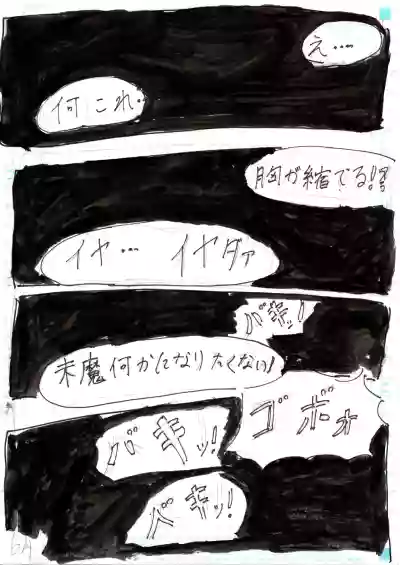 え…
何コレ…
胸が縮でる!?
イヤ… イヤダァ
バキッ!
末魔何かになりたくない!
ゴボォ
バキッ!
バキッ!